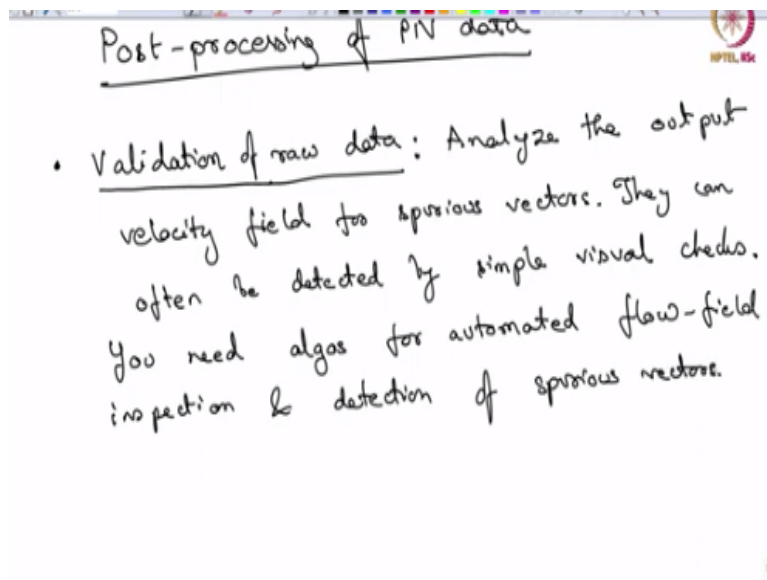 Post-processing of PIV data
NPTEL, IISc
• Validation of raw data: Analyze the output
velocity field for spurious vectors. They can
often be detected by simple visual checks.
You need algos for automated flow-field
inspection & detection of spurious vectors.